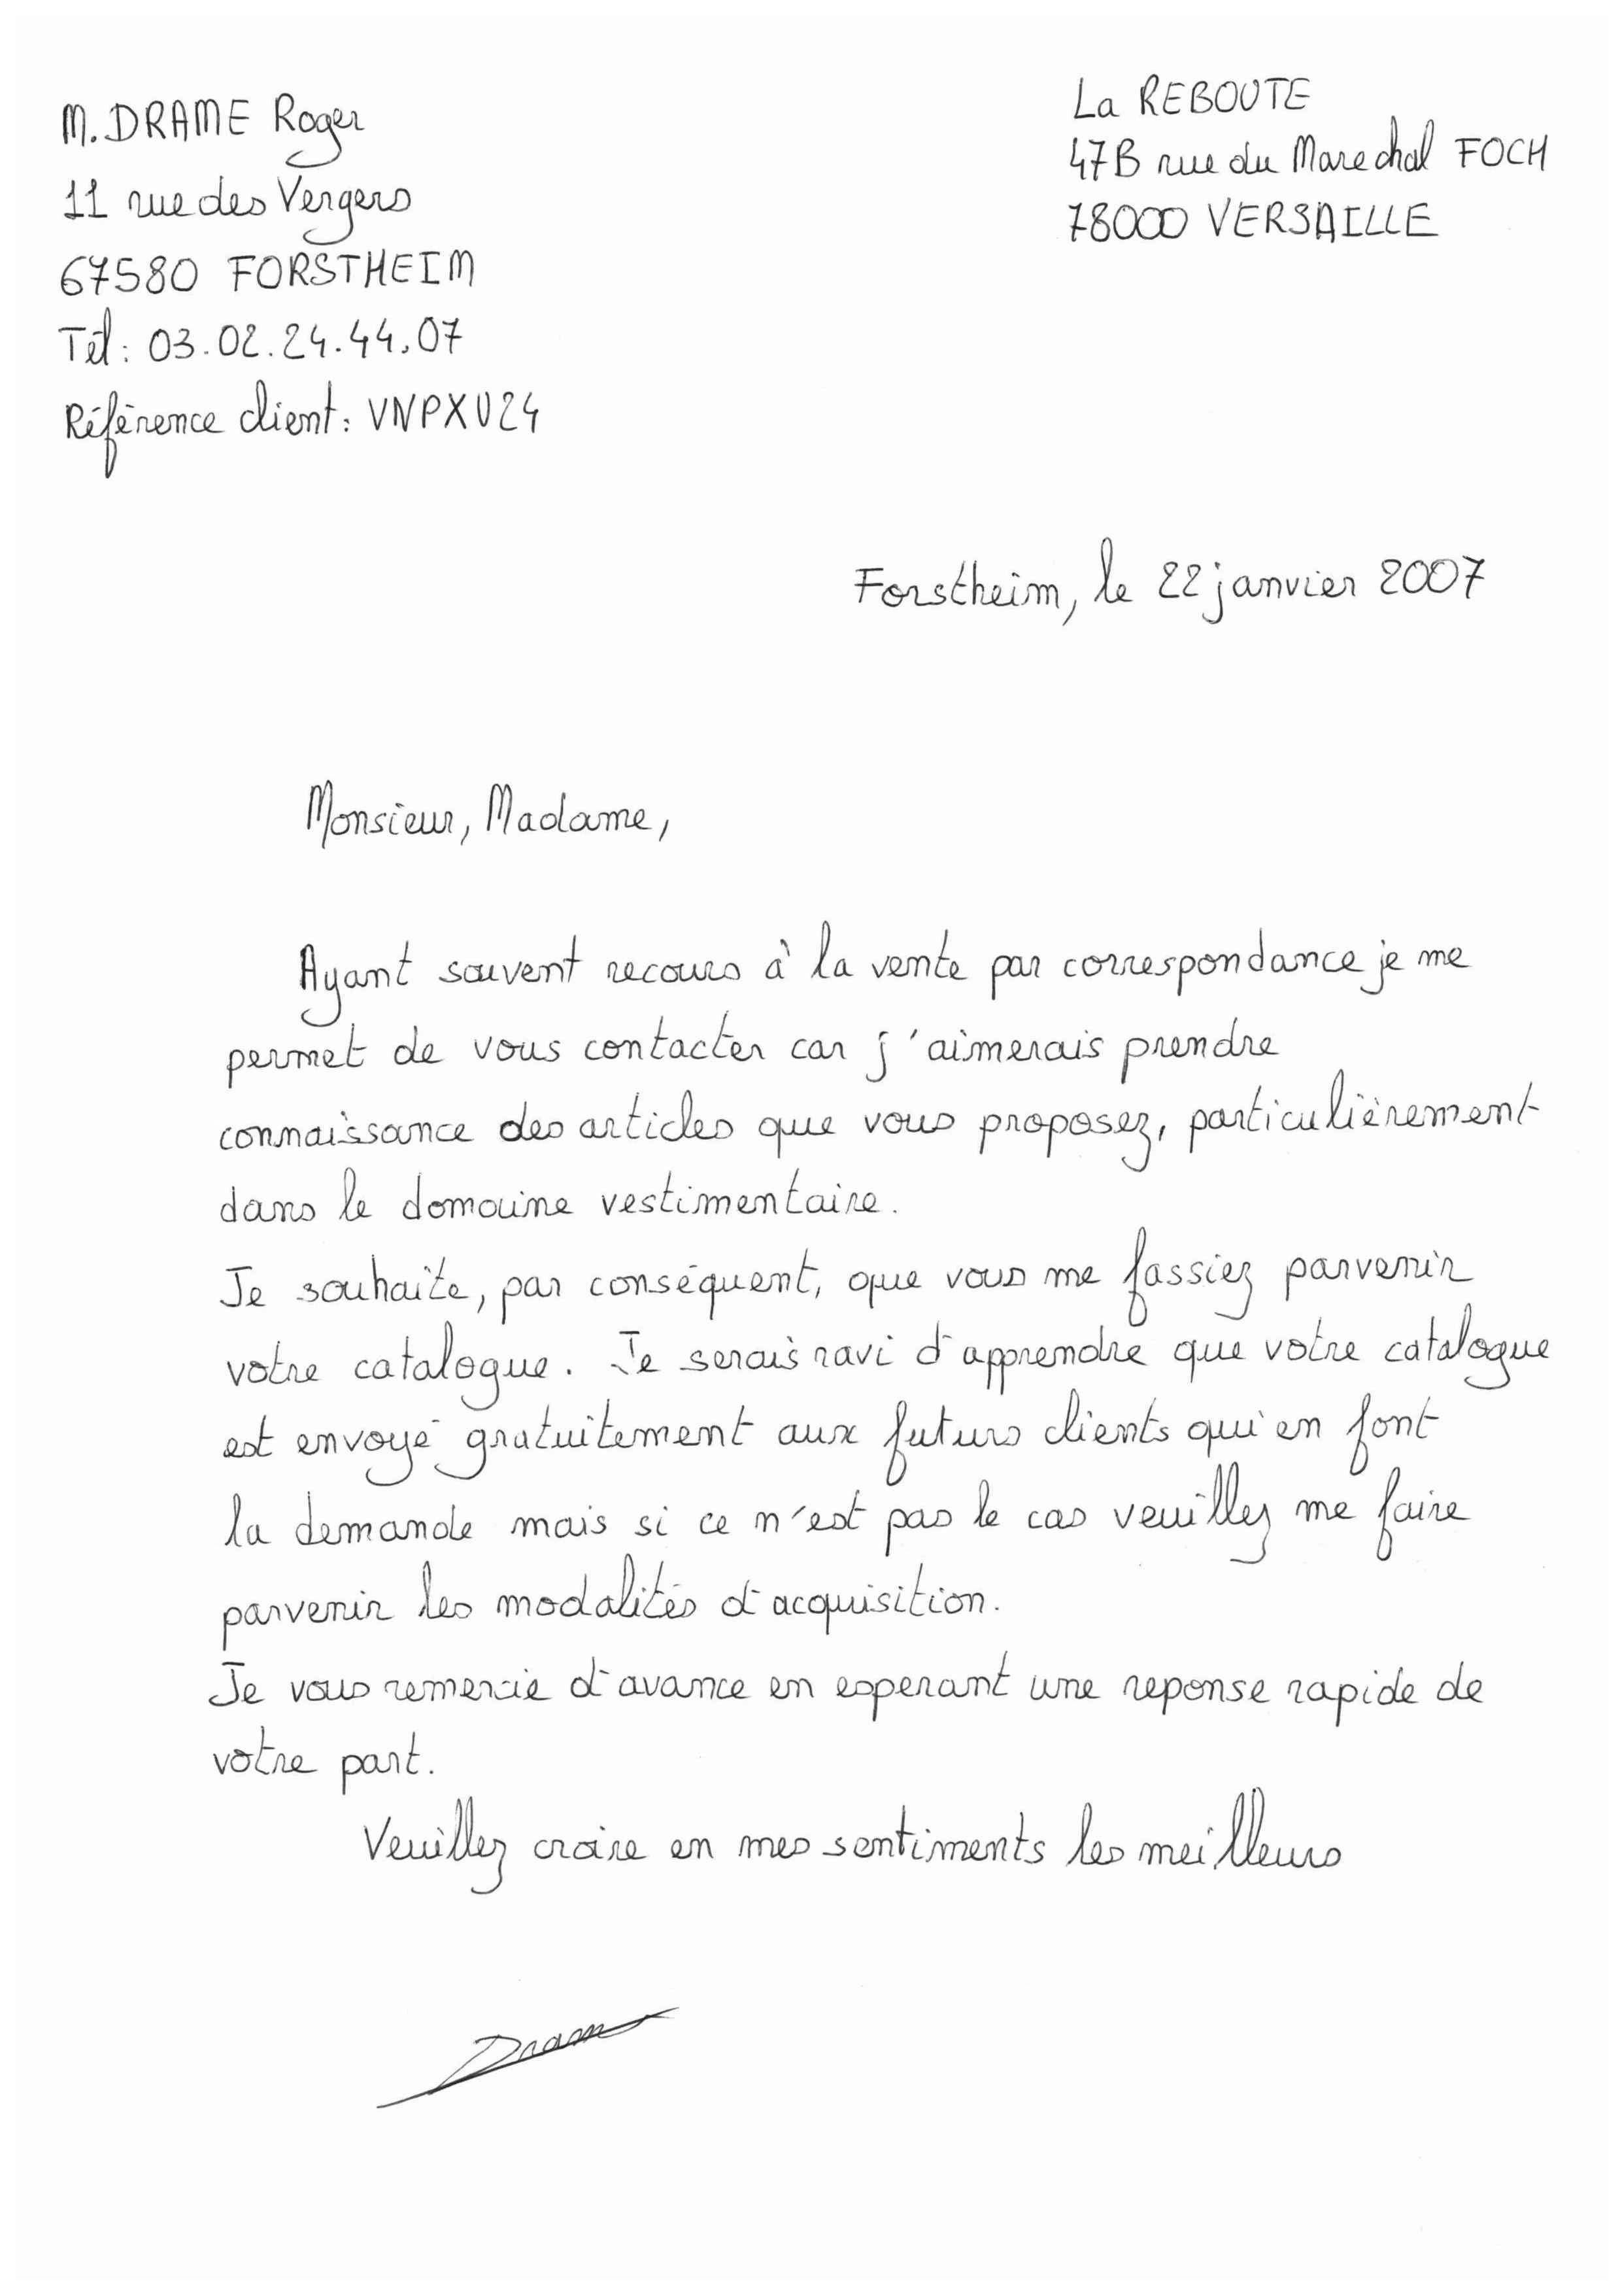 M. DRAME Roger
11 rue des Vergers
67580 FORSTHEIM
Tél: 03.02.24.44.07
Référence client: VNPXU24
La REBOUTE
47B rue du Marechal FOCH
78000 VERSAILLE
Forstheim, le 22 janvier 2007
Monsieur, Madame,
Ayant souvent recours à la vente par correspondance je me
permet de vous contacter car j'aimerais prendre
connaissance des articles que vous proposez, particulièrement
dans le domaine vestimentaire.
Je souhaite, par conséquent, que vous me fassiez parvenir
votre catalogue. Je serais ravi d'apprendre que votre catalogue
est envoyé gratuitement aux futurs clients qui en font
la demande mais si ce n'est pas le cas veuillez me faire
parvenir les modalités d'acquisition.
Je vous remercie d'avance en esperant une reponse rapide de
votre part.
Veuillez croire en mes sentiments les meilleurs
Drame